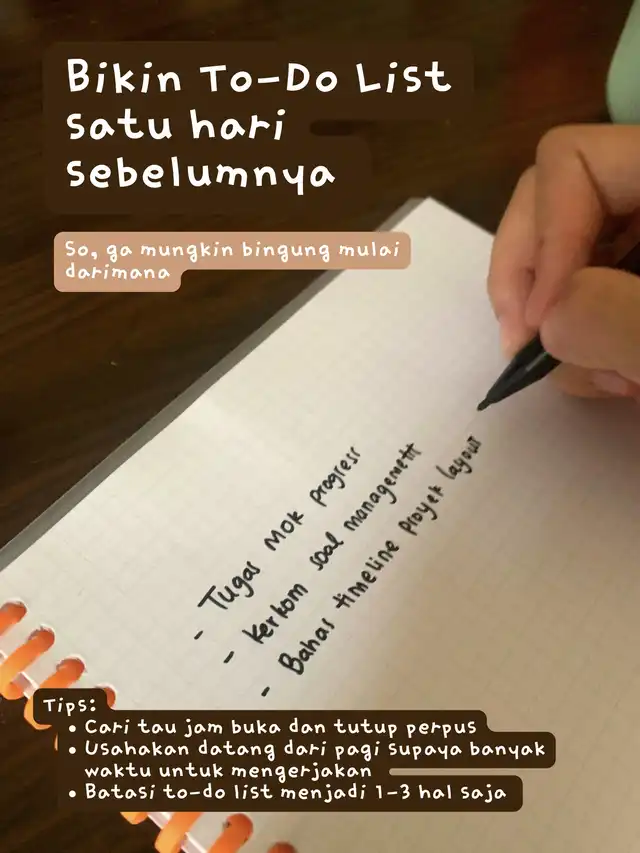 Bikin To-Do List
satu hari
sebelumnya
So, ga mungkin bingung mulai
darimana
- Tugas MOK progress
- Kerkom soal management
- Bahas timeline proyek layout
Tips:
• Cari tau jam buka dan tutup perpus
• Usahakan datang dari pagi supaya banyak
waktu untuk mengerjakan
• Batasi to-do list menjadi 1-3 hal saja